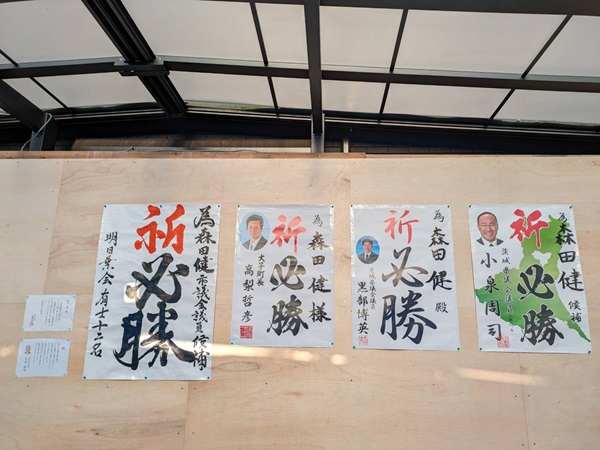 為森田健市議会議員候補
祈
必勝
明日葉会有志十二名
為森田健様
祈
必勝
大子町長
高梨哲彦
為森田健殿
祈
必勝
茨城県議会議員
黒部博英
為森田健候補
祈
必勝
茨城県議会議員
小泉周司